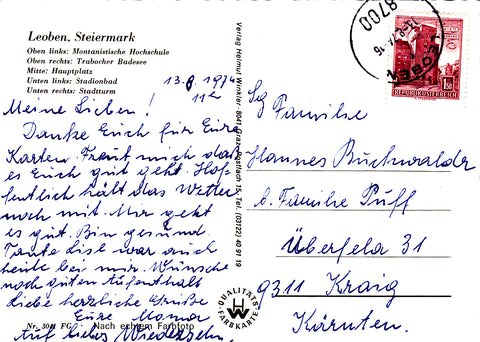 Leoben, Steiermark
Oben links: Montanistische Hochschule
Oben rechts: Trabocher Badesee
Mitte: Hauptplatz
Unten links: Stadionbad
Unten rechts: Stadtturm
13.8.1974
11 Uhr
Meine Lieben!
Danke Euch für Eure
Karten. Freut mich daß
es Euch gut geht. Hof-
fentlich hält das Wetter
noch mit. Mir geht
es gut. Bin gesund.
Tante Lisl war auch
heute bei mir. Wünsche
noch guten Aufenthalt
Liebe herzliche Grüße
Eure Mama
Auf liebes Wiedersehn.
Nr. 3041 FG
Nach echtem Farbfoto
Verlag Helmut Winkler · 8041 Graz · Postfach 15 · Tel. (03122) 40 91 19
QUALITÄTS
FARBKARTE
8700
LEOBEN
REPUBLIK ÖSTERREICH
Sg Familie
Hannes Buchwalder
b. Familie Puff
Überfeld 31
9311 Kraig
Kärnten.